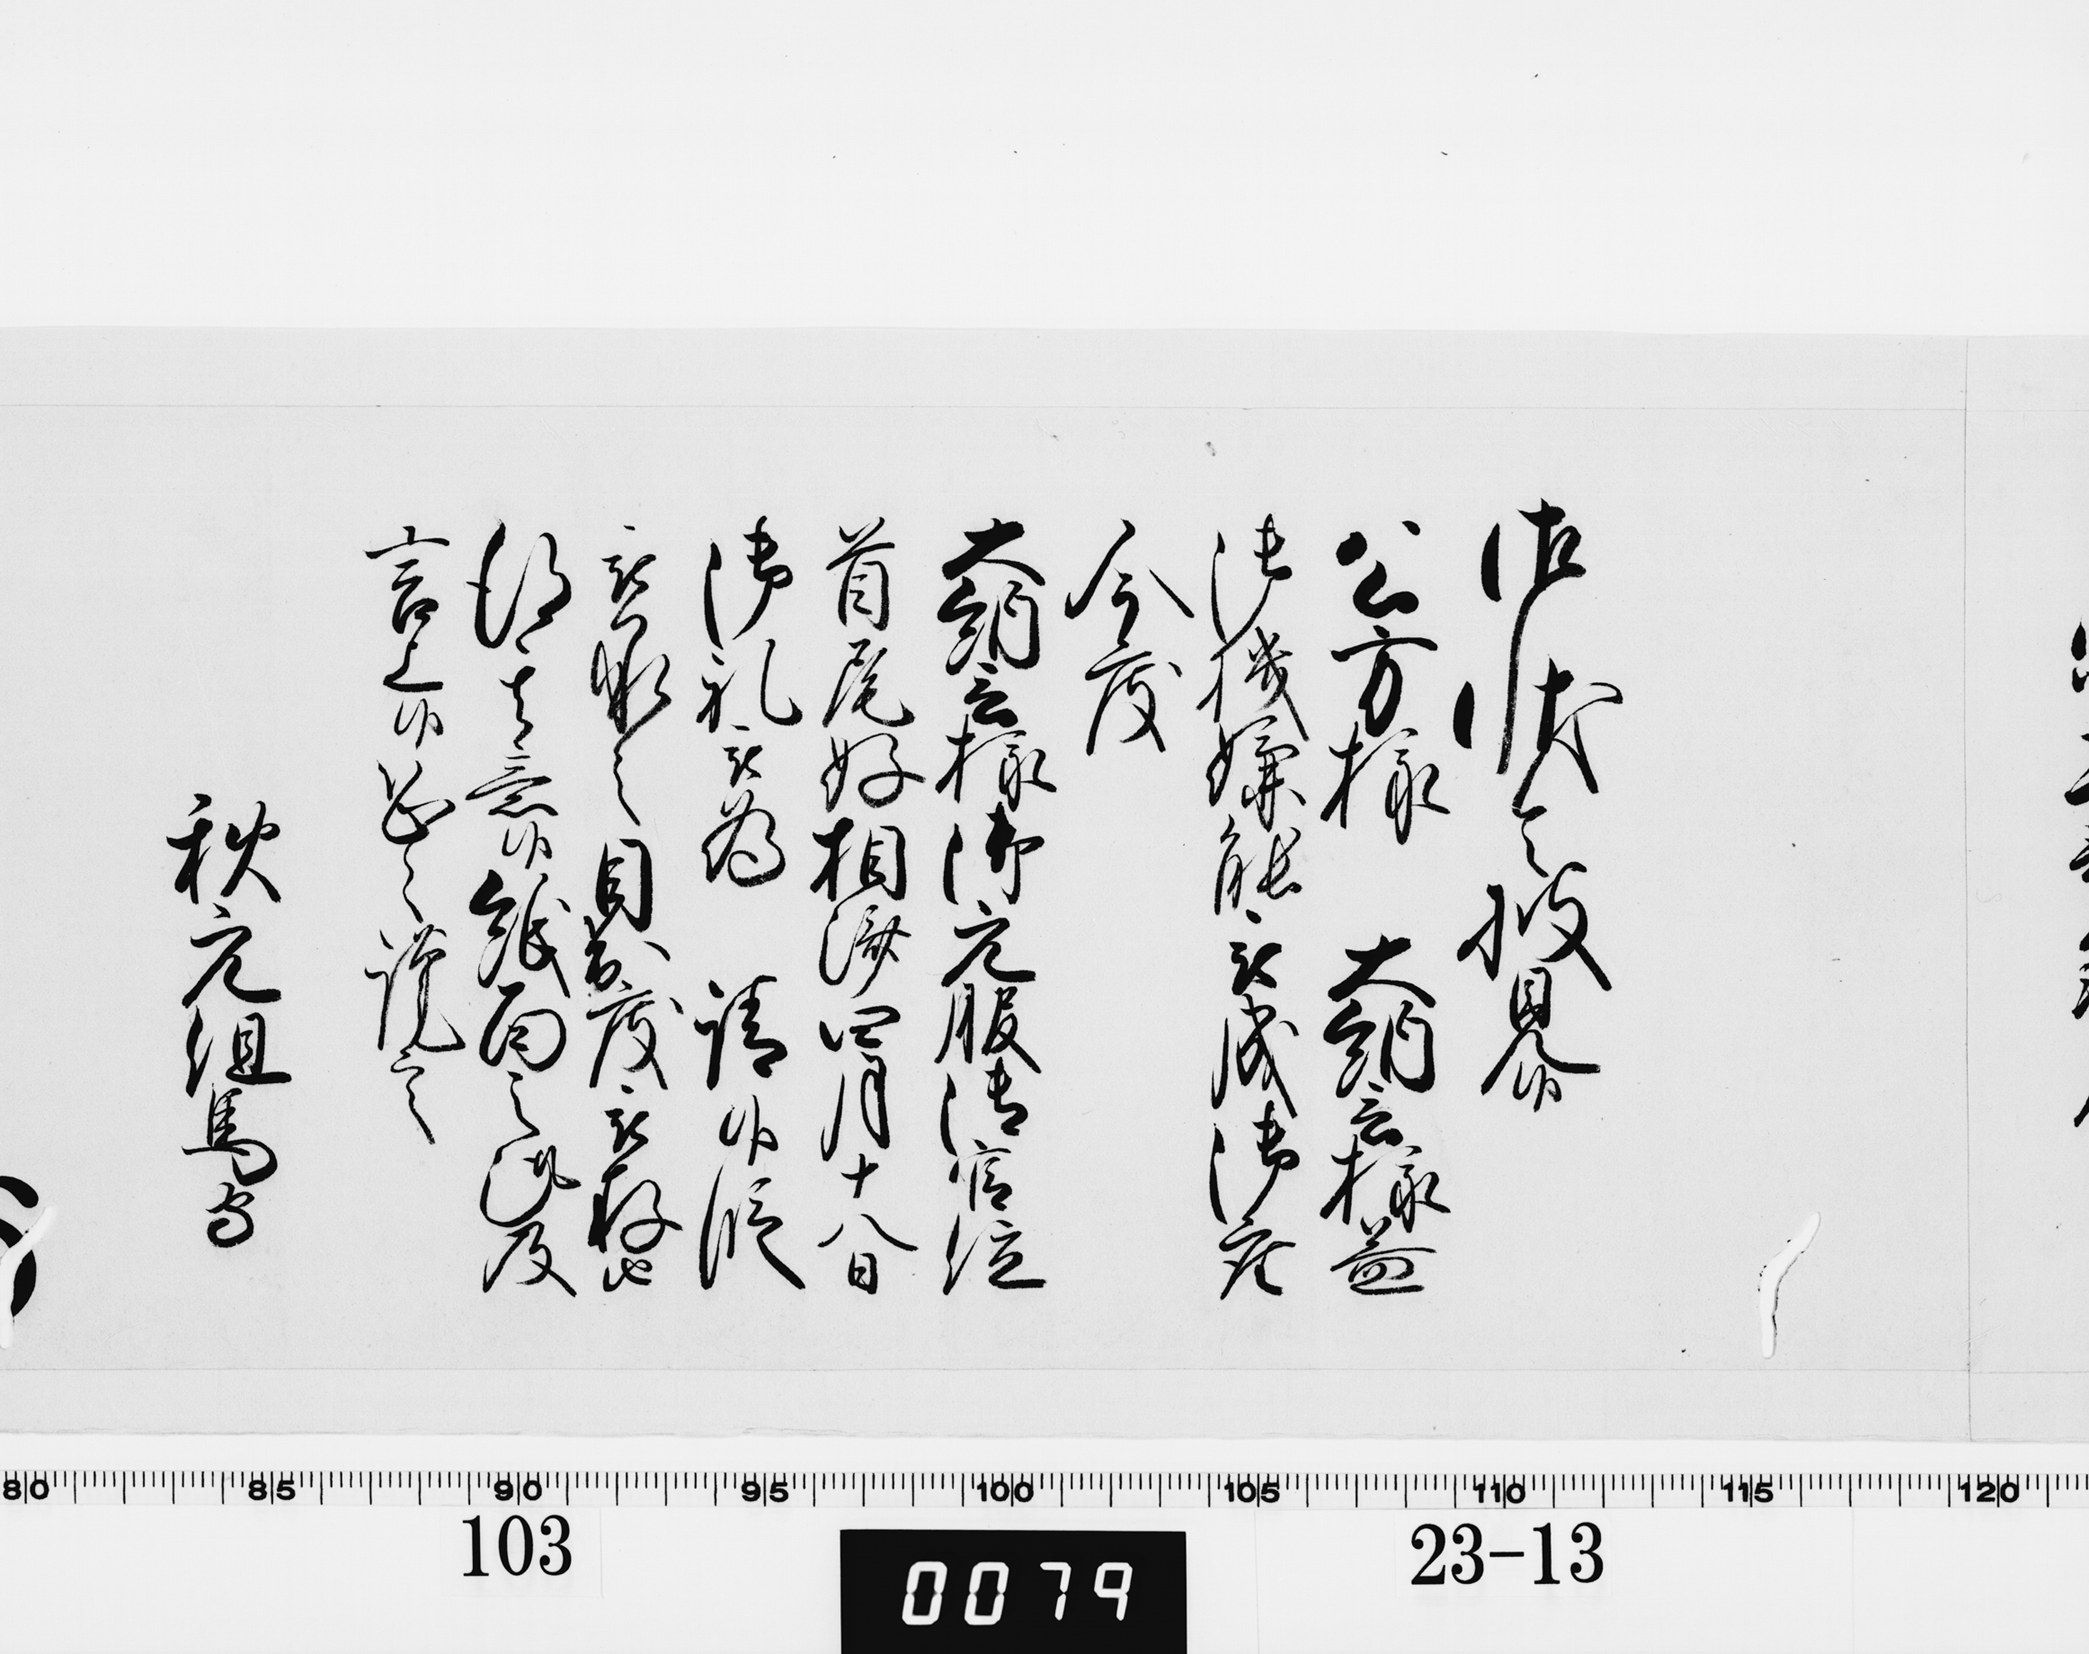 御状令披見候
公方様　大納言様益
御機嫌能被成御座
今度
大納言様御元服御官位
首尾好相済四月十八日
御礼被為　請候段
被承之目出度被存
得其意候紙面之趣及
言上候恐々謹言
秋元但馬守
80 85 90 95 100 105 110 115 120
103
0079
23-13